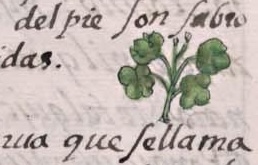 del pie son sabro
idas.
rua que sellama